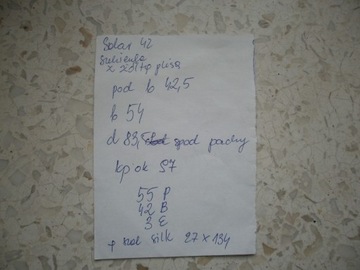 Solar 42
Sukienka
z żółtą plisą
pod b 42,5
b 54
d 83,5 spod pachy
kp ok 57
55 P
42 B
3 E
+ hal silk 27 x 134